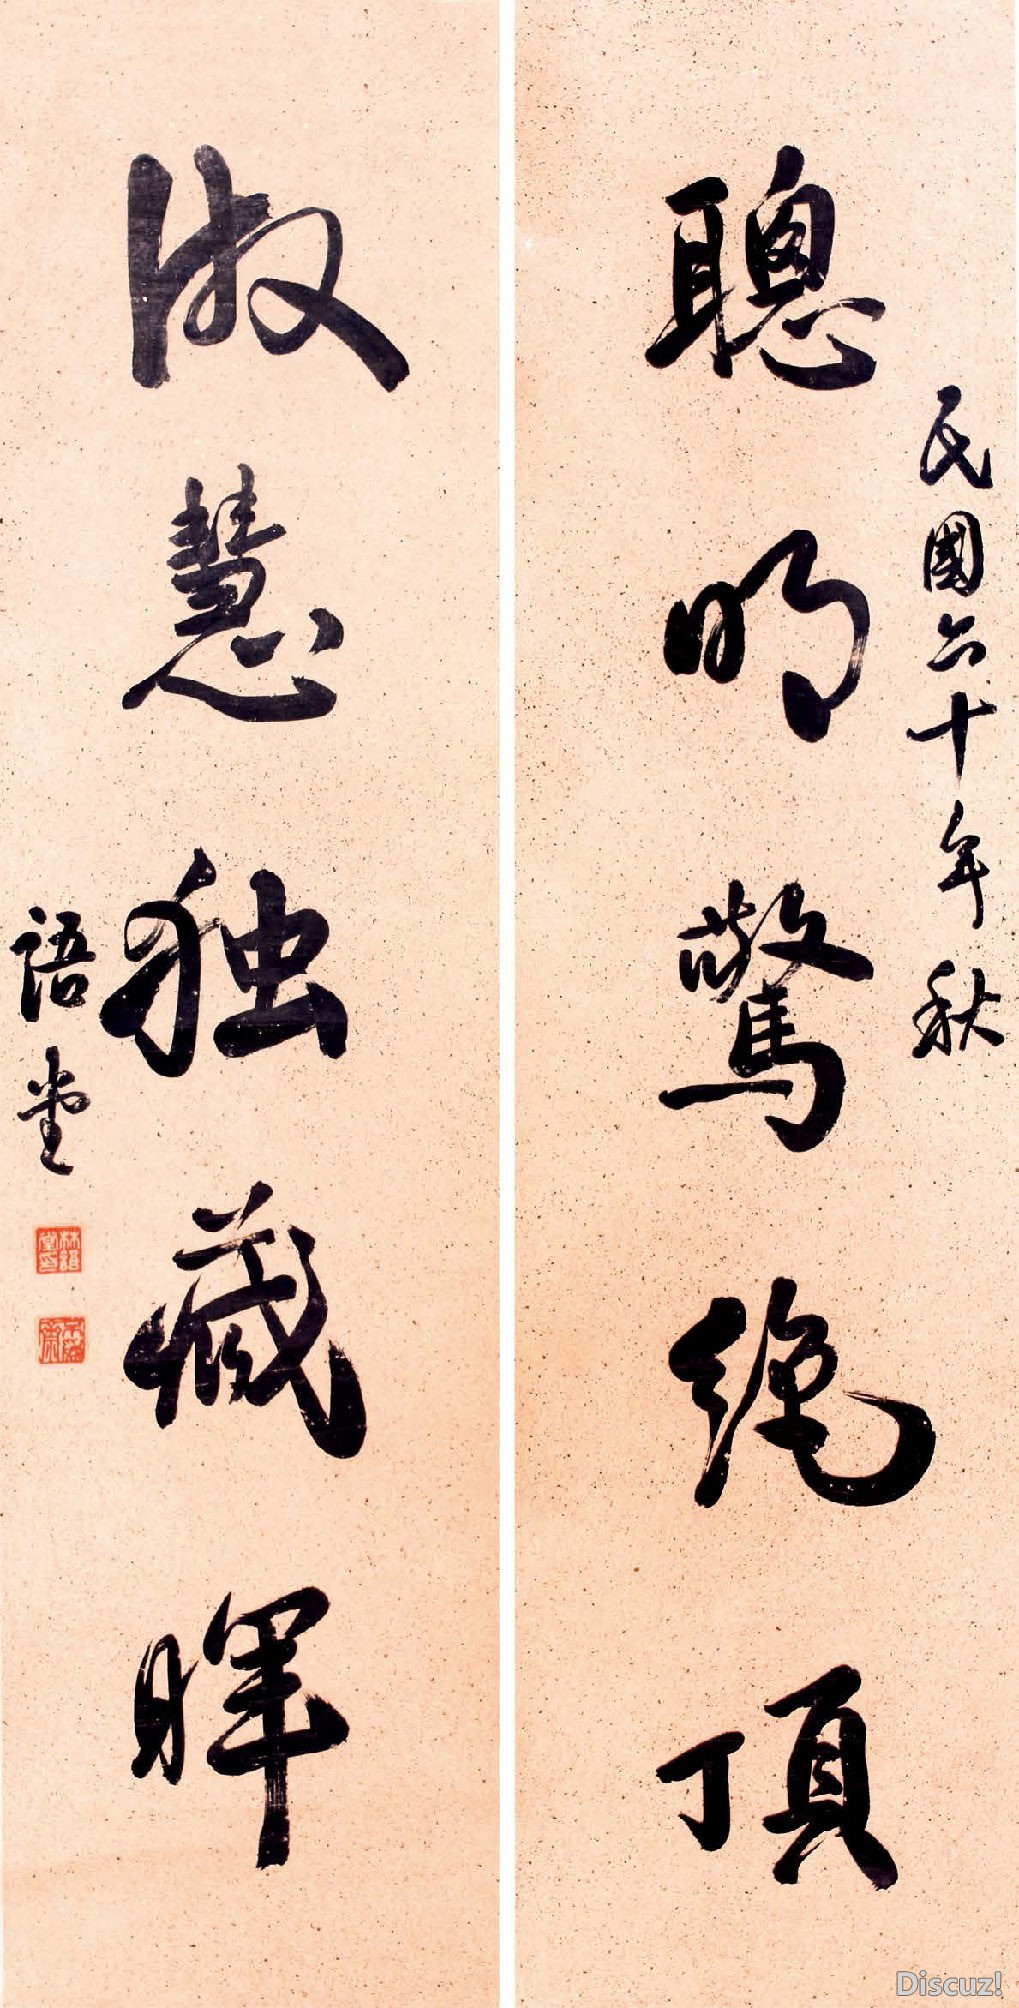 聰明驚絶頂
民國六十年秋
淑慧独藏暉
語堂
林語堂印
Discuz!